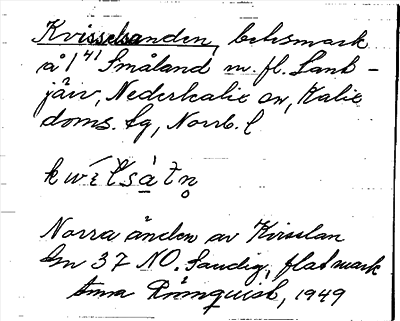 Kvisselsanden, betesmark
å 1⁴¹ Småland m. fl. Sank-
järv, Nederkalix sn, Kalix
doms. tg, Norrb. l
kwiʹlsàtn̥
Norra änden av Kisslan
km 37 NO. Sandig, flat mark
Anna Prånquist, 1949